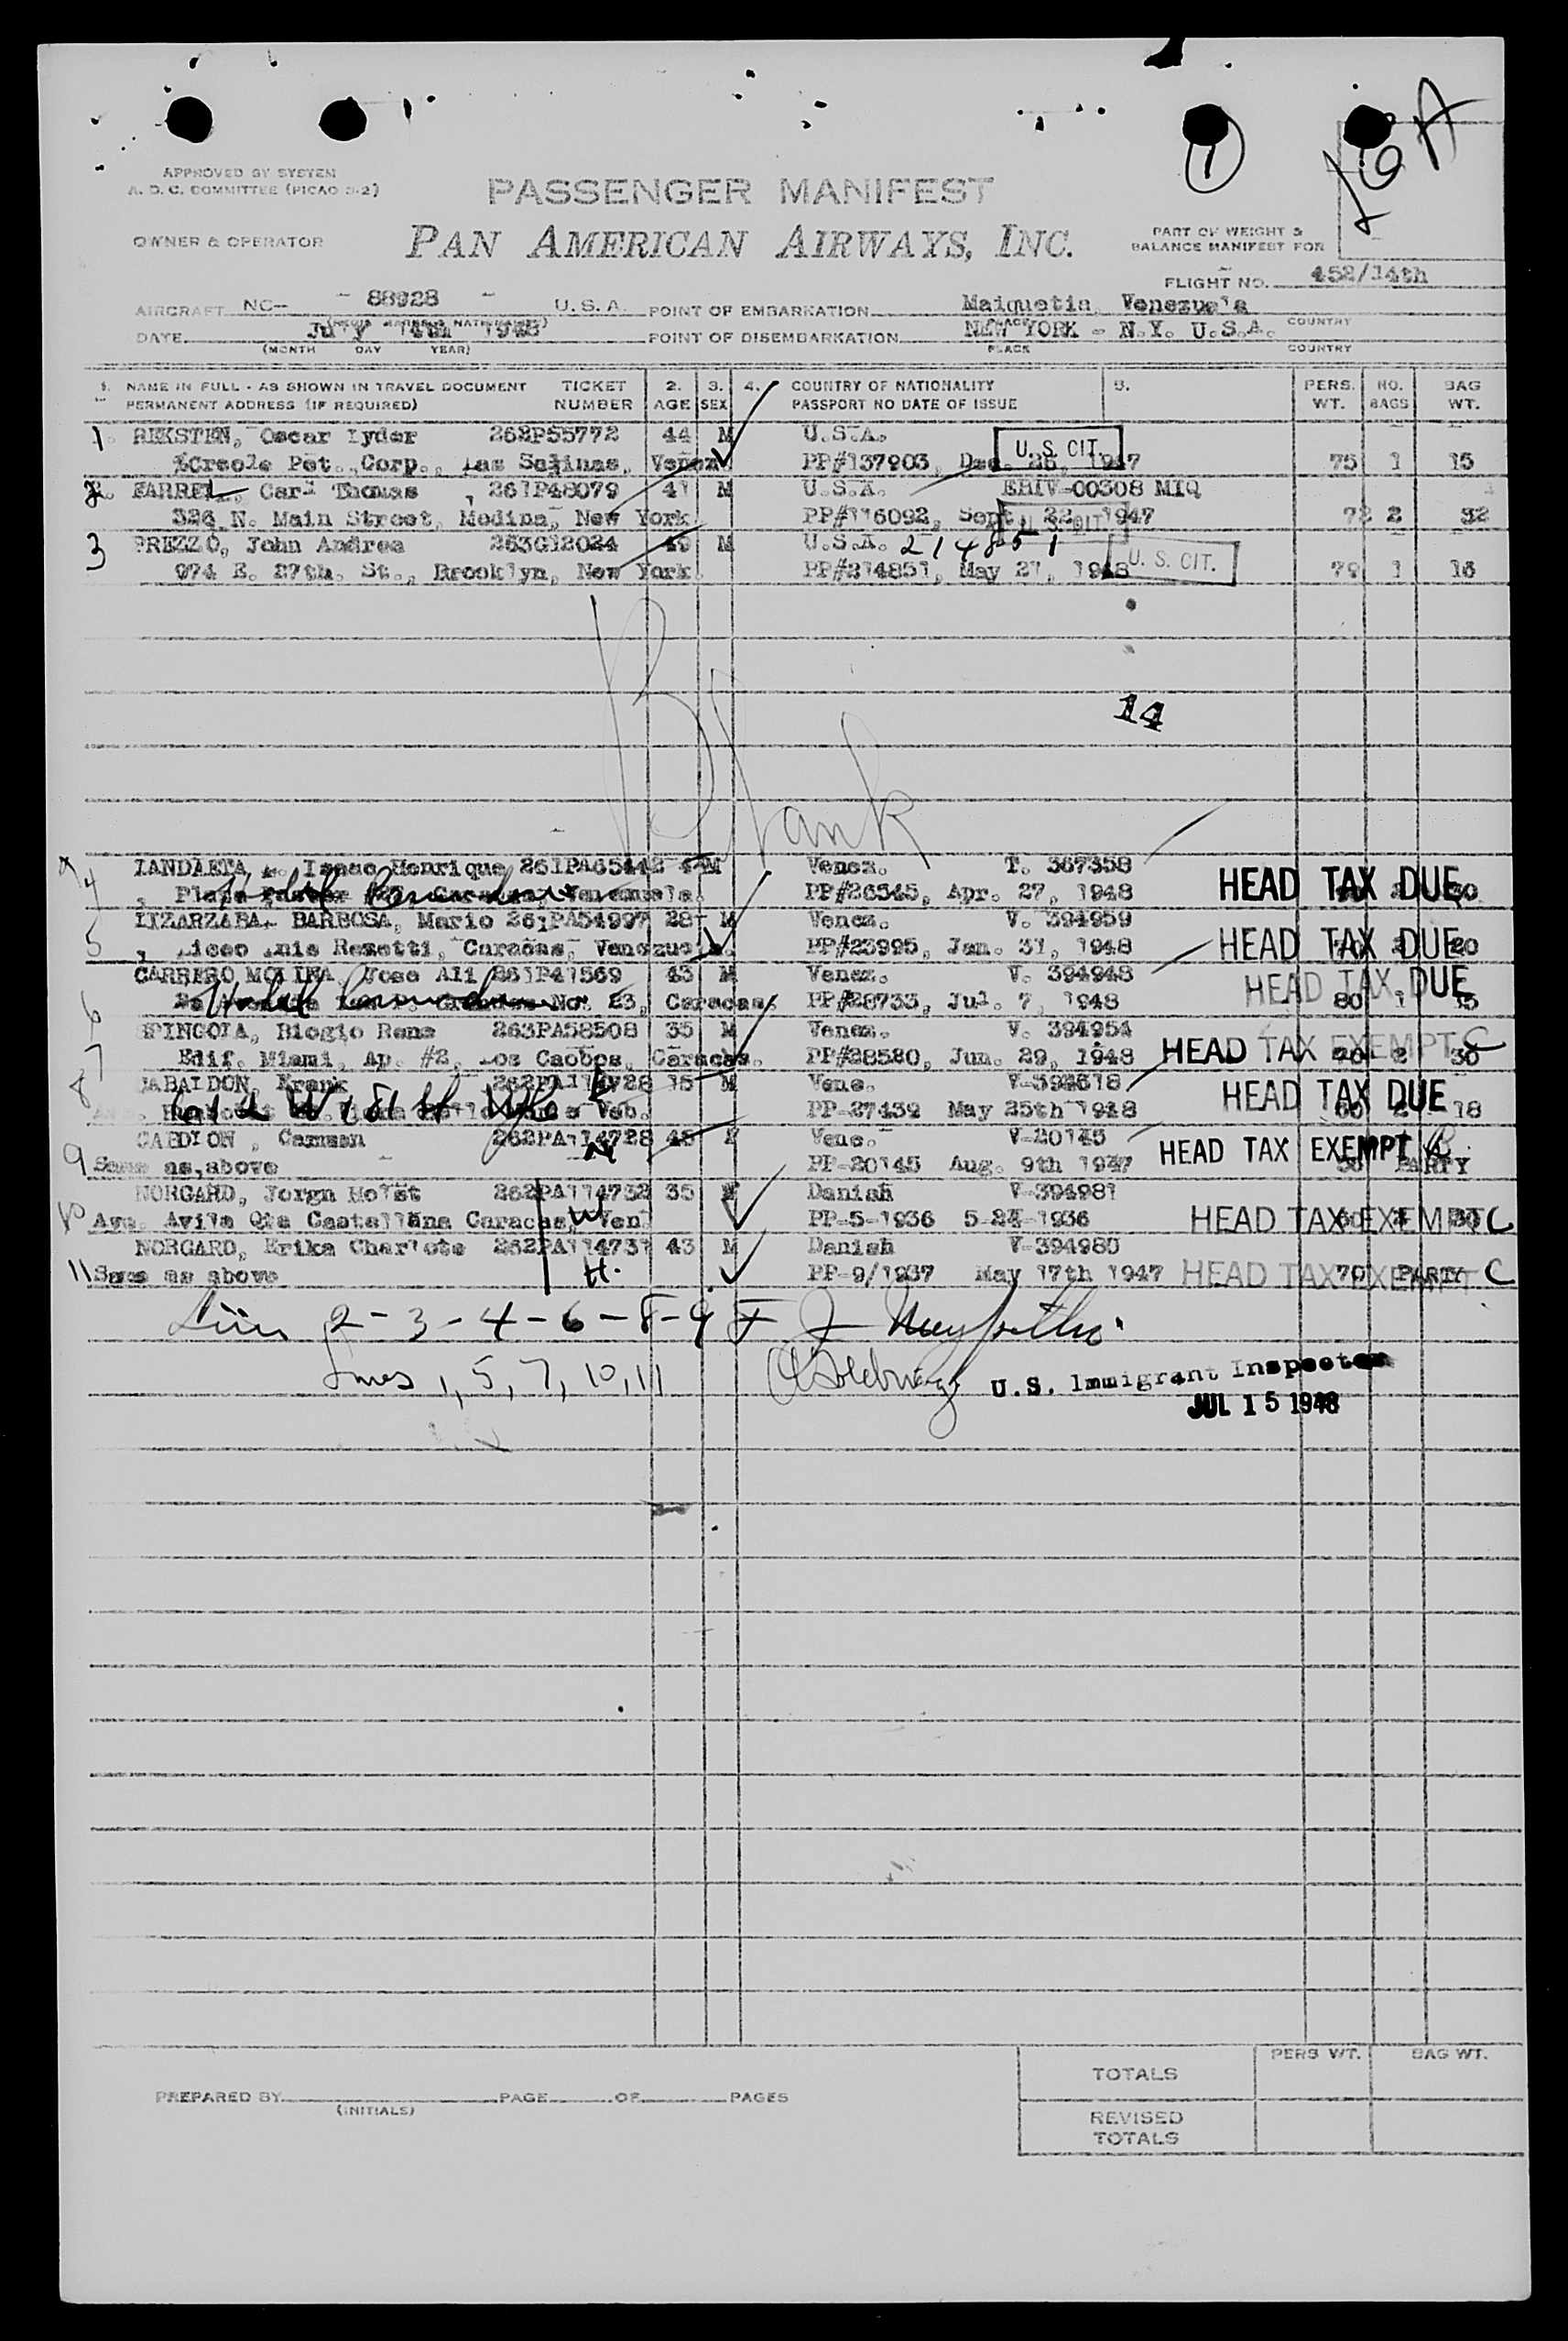 16A
1
APPROVED BY SYSTEM
A. D. C. COMMITTEE (PICAO S-2)
PASSENGER MANIFEST
OWNER & OPERATOR
PAN AMERICAN AIRWAYS, INC.
PART OF WEIGHT &
BALANCE MANIFEST FOR
FLIGHT NO. 452/14th
AIRCRAFT NC- - 88928 - U.S.A. POINT OF EMBARKATION Maiquetia, Venezuela
DATE July 14th 1948 POINT OF DISEMBARKATION NEW YORK - N.Y. U.S.A.
(MONTH DAY YEAR) PLACE COUNTRY
1. NAME IN FULL - AS SHOWN IN TRAVEL DOCUMENT TICKET 2. 3. 4. COUNTRY OF NATIONALITY 5. PERS. NO. BAG
PERMANENT ADDRESS (IF REQUIRED) NUMBER AGE SEX PASSPORT NO DATE OF ISSUE WT. BAGS WT.
1 REKSTEN, Oscar Lyder 262P55772 44 M U.S.A. U.S. CIT.
%Creole Pet. Corp., Las Salinas, Venez. PP#137903, Dec. 26, 1947 75 1 15
2. FARRELL, Carl Thomas, 261P48079 41 M U.S.A. EHIV-00308 MIQ
326 N. Main Street, Medina, New York. PP#116092, Sept. 22, 1947 U.S. CIT 72 2 32
3 PREZZO, John Andrea 263G12024 49 M U.S.A. 214851
974 E. 27th. St., Brooklyn, New York. PP#214851, May 27, 1948 U. S. CIT. 79 1 16
14
Blank
4 LANDAETA L. Isaac Henrique 261PA65442 M Venez. T. 367358
Plaza Venezuela. PP#26545, Apr. 27, 1948 HEAD TAX DUE
5 LIZARZABA- BARBOSA, Mario 261PA54997 28 M Venez. V. 394959
, Liceo Luis Razetti, Caracas, Venezuela. PP#23995, Jan. 31, 1948 HEAD TAX DUE 20
6 CARRERO MOLINA Jose Ali 261P41569 43 M Venez. V. 394948 HEAD TAX DUE
No. 23, Caracas. PP#28733, Jul. 7, 1948 80 1 15
7 SPINGOLA, Biogio Rene 263PA58508 35 M Venez. V. 394954
Edif. Miami, Ap. #2, Los Caobos, Caracas. PP#28520, Jun. 29, 1948 HEAD TAX EXEMPT C 30
8 Frank 15 M Vene. V-394618
PP-27439 May 25th 1948 HEAD TAX DUE 18
9 Carmen 262PA114728 45 F Vene. V-20145
Same as, above PP-20145 Aug. 9th 1947 HEAD TAX EXEMPT PARTY
10 NORGARD, Jorgn Holst 262PA114732 35 Danish V-394981
Ave. Avila Qta Castellana Caracas, Ven. W PP-5-1936 HEAD TAX EXEMPT C
11 NORGARD, Erika Charlote 262PA114731 43 M Danish V-394980
Same as above H. PP-9/1937 May 17th 1947 HEAD TAX EXEMPT 70 PARTY C
2 - 3 - 4 - 6 - 8 - 9
Lines 1, 5, 7, 10, 11
U.S. Immigrant Inspector
JUL 15 1948
TOTALS PERS WT. BAG WT.
PREPARED BY PAGE OF PAGES
(INITIALS)
REVISED
TOTALS